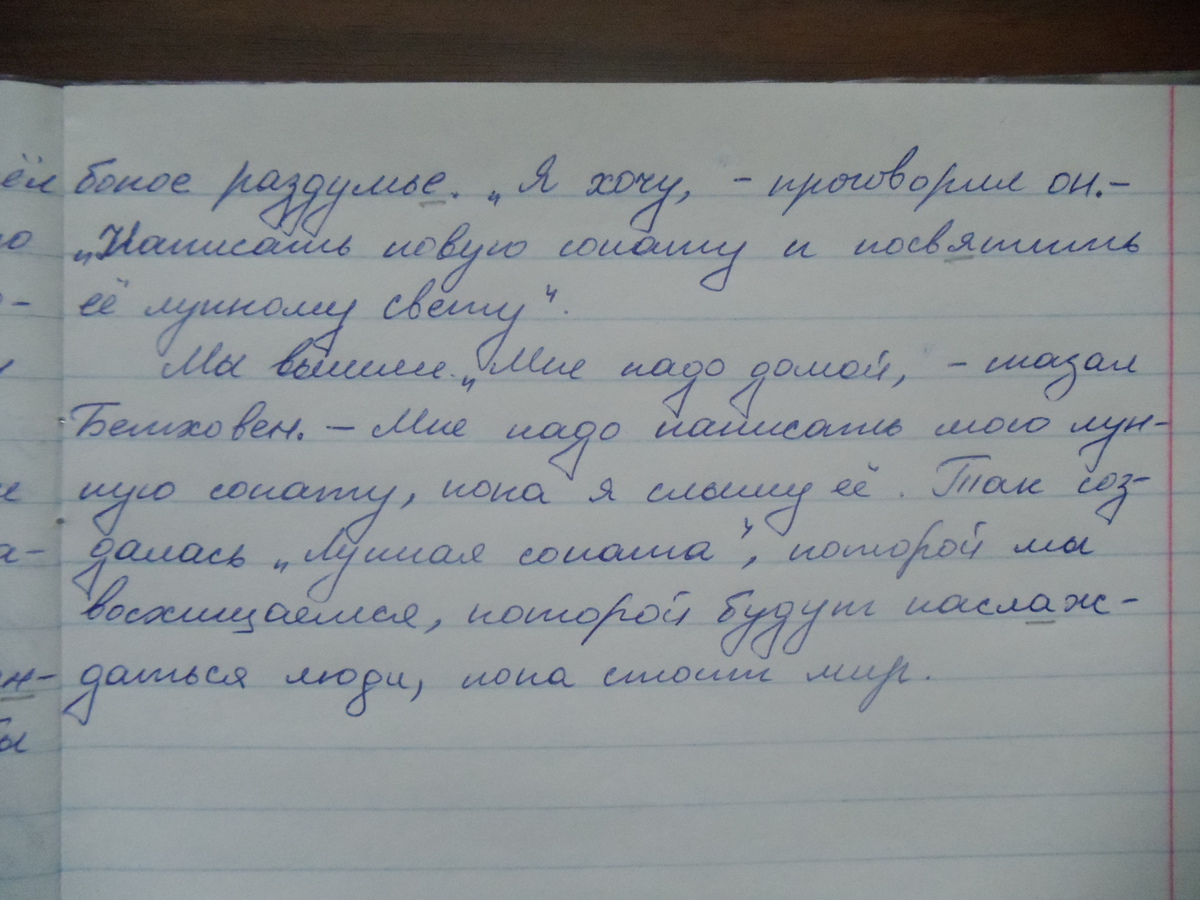 бокое раздумье. „Я хочу, - проговорил он.-
„Написать новую сонату и посвятить
её лунному свету“.
Мы вышли. „Мне надо домой, - сказал
Бетховен. - Мне надо написать мою лун-
ную сонату, пока я слышу её. Так соз-
далась „Лунная соната“, которой мы
восхищаемся, которой будут наслаж-
даться люди, пока стоит мир.